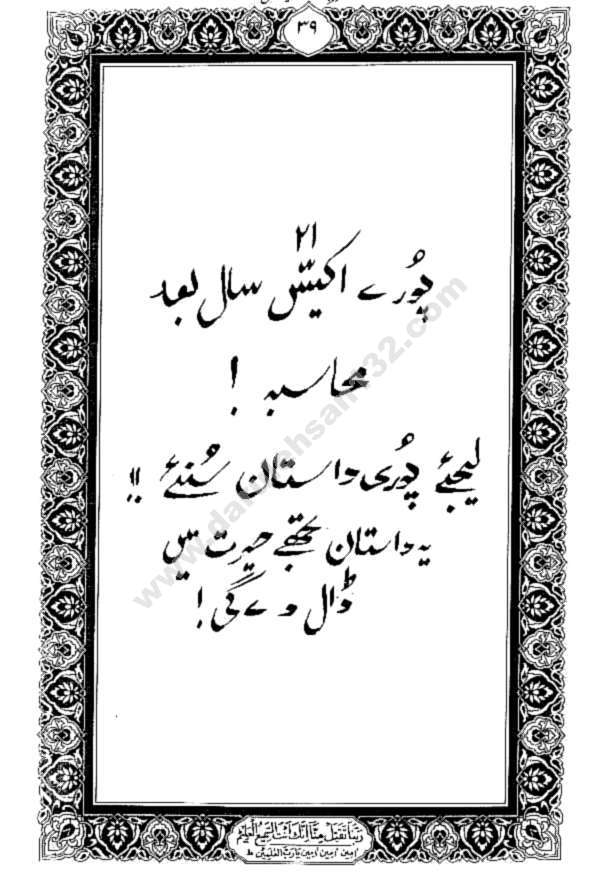 ۳۹
۲۱
پُورے اکیس سال بعد
محاسبہ !
لیجئے پُوری داستان سُنئے !!
یہ داستان تجھے حیرت میں
ڈال دے گی !
www.da
hsan
32.com
ربنا تقبل منا انك انت السميع العليم
امين امين امين يارب العلمين ط